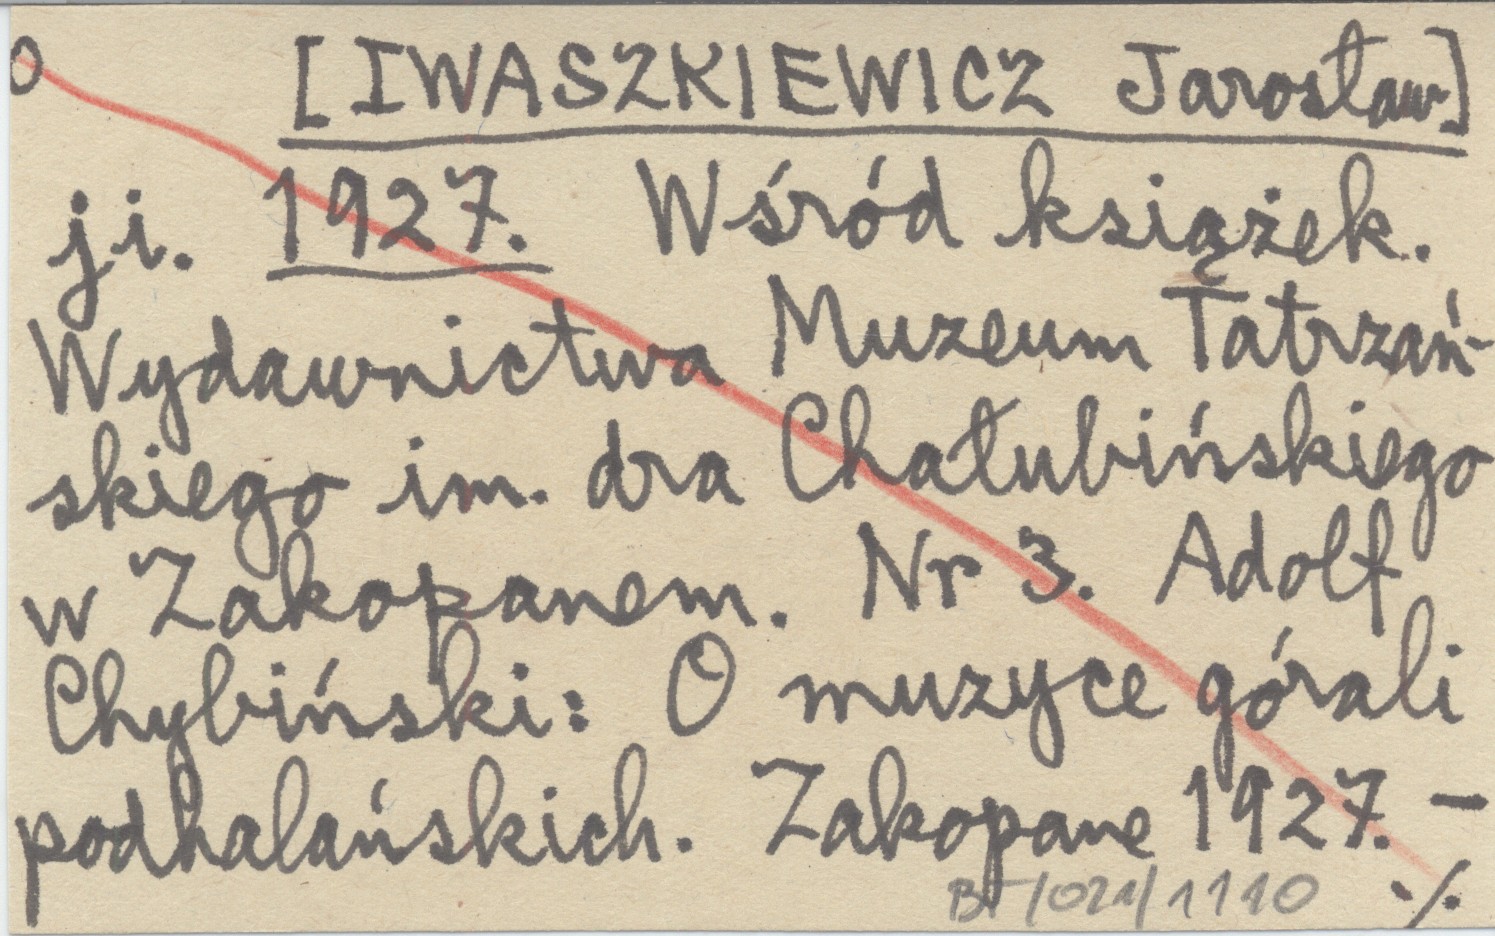 o [IWASZKIEWICZ Jarosław]
ji. 1927. Wśród książek.
Wydawnictwa Muzeum Tatrzań-
skiego im. dra Chałubińskiego
w Zakopanem. Nr 3. Adolf
Chybiński: O muzyce górali
podhalańskich. Zakopane 1927. –
BT/021/1110 ./.